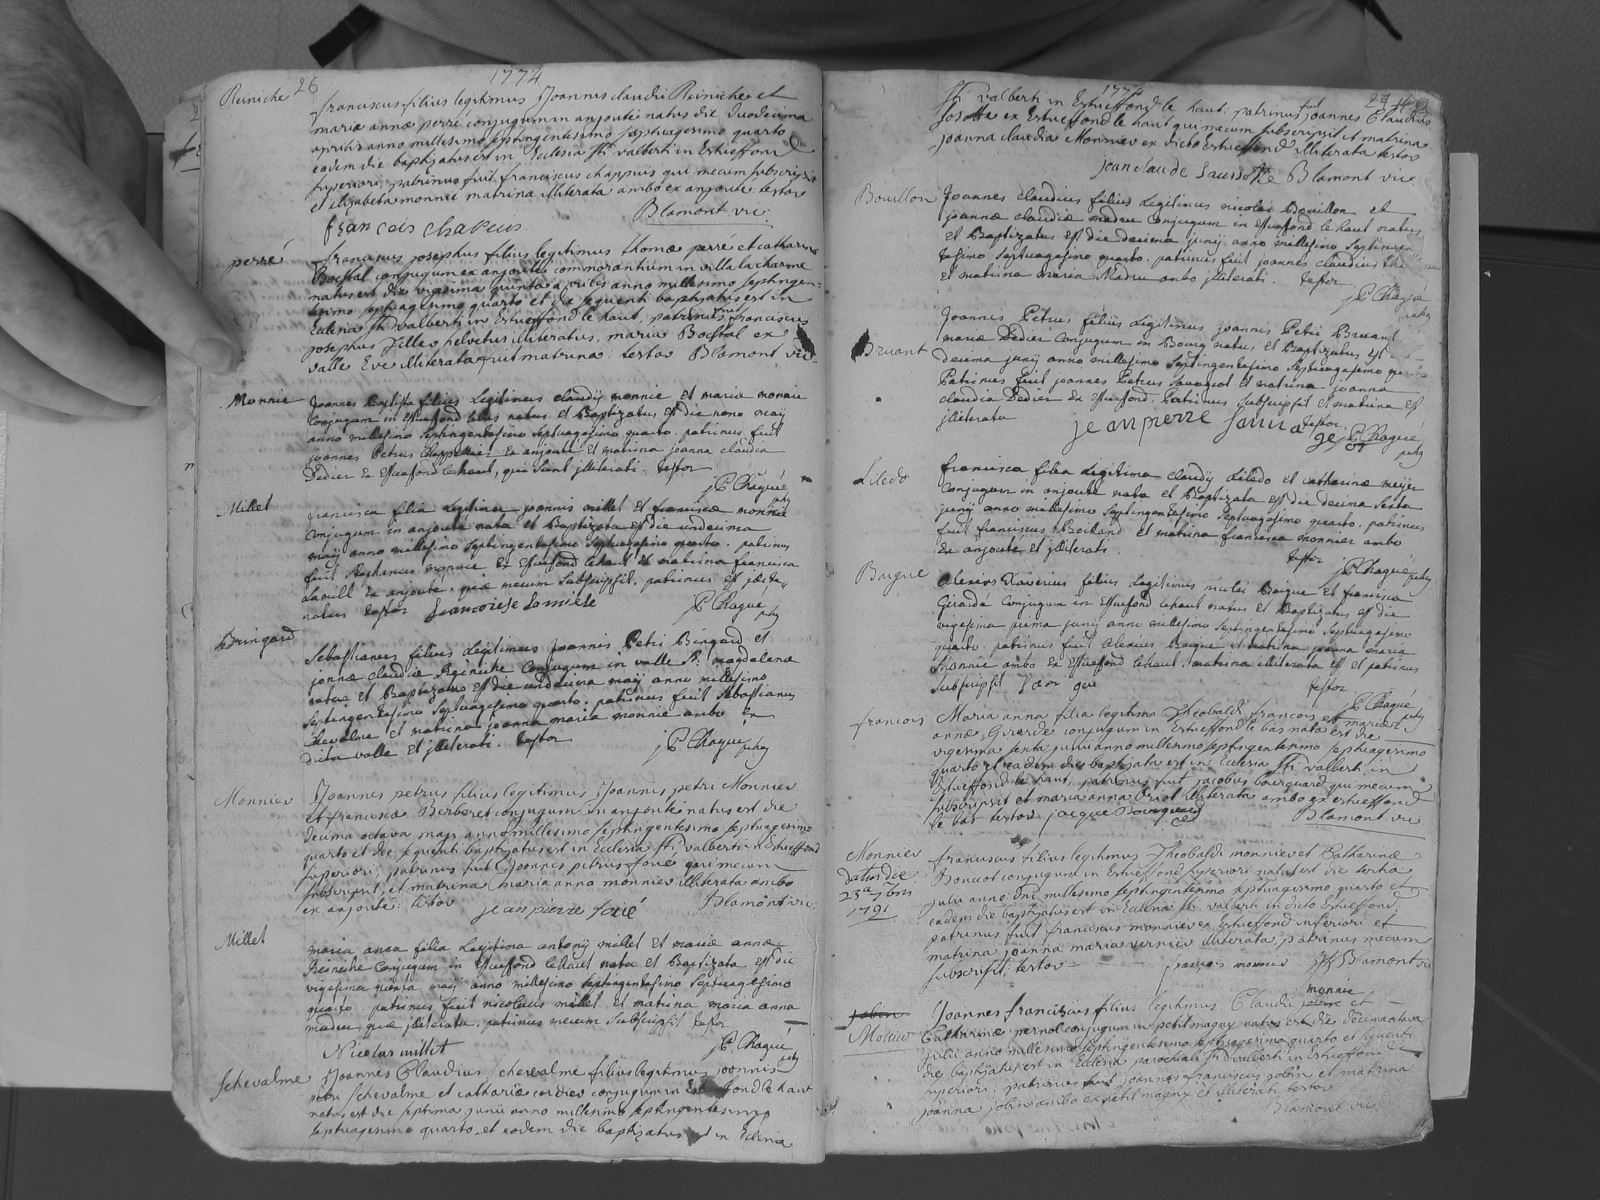 26
1774
Reiniche
franciscus filius legitimus Joannis claudii Reiniche et
mariæ annæ perré conjugum in anjouté natus die duodecima
aprilis anno millesimo septingentesimo septuagesimo quarto
eadem die baptizatus est in Ecclesia sti valberti in Estueffond
superiori, patrinus fuit franciscus chappuis qui mecum subscripsit
et elizabeta monnie matrina illiterata ambo ex anjouté. testor
Blamont vic.
françois chapuis
perré
franciscus josephus filius legitimus thomæ perré et catharinæ
Bostal conjugum ex anjoutés commorantium in villa lacharme
natus est die vigesima quinta aprilis anno millesimo septingen=
tesimo septuagesimo quarto et die sequenti baptizatus est in
Ecclesia sti valberti in Estueffond le haut, patrinus fuit franciscus
josephus Zille helvetus illiteratus, maria Bostal ex
valle Eve illiterata fuit matrina: testor Blamont vic
Monnie
Joannes Baptista filius Legitimus claudij monnie et maria monnie
Conjugum in Estuefond lebas natus et Baptizatus est die nono maij
anno millesimo septingentesimo septuagesimo quarto. patrinus fuit
joannes Petrus Chappuis Ex anjouté et matrina joanna claudia
Dedier Ex Estuefond lehaut, qui sunt jlliterati. testor
jC Chagué
pbr
Millet
francisca filia Legitima joannis millet Et franciscæ monnie
Conjugum in anjouté nata et Baptizata est die undecima
maij anno millesimo septingentesimo septuagesimo quarto. patrinus
fuit Stephanus monnie Ex Estuefond lehaut et matrina francisca
Ex anjouté, quæ mecum subscripsit. patrinus est jllite
ratus testor francoise Lomiele
jC Chagué
pbr
Bringard
Sebastianus filius Legitimus joannis Petri Bringard et
joannæ claudiæ Reiniche Conjugum in valle St. magdalena
natus et Baptizatus est die undecima maij anno millesimo
septingentesimo septuagesimo quarto. patrinus fuit Sebastianus
Chevalme et matrina joanna maria monnie ambo Ex
dicta valle et jlliterati. testor
jC Chague pbr
Monnier
Joannes petrus filius legitimus Joannis petri Monnier
et franciscæ Berberet conjugum in anjouté natus est die
decima octava maji anno millesimo septingentesimo septuagesimo
quarto et die sequenti baptizatus est in Ecclesia sti valberti in Estueffond
superiori; patrinus fuit Joannes petrus foué qui mecum
subscripsit, et matrina maria anna monnier illiterata ambo
ex anjouté: testor jean pierre foué Blamont vic.
Millet
maria anna filia Legitima antonij millet Et mariæ annæ
Reiniche Conjugum in Estuefond lehaut nata et Baptizata est die
vigesima quarta maij anno millesimo septingentesimo septuagesimo
quarto. patrinus fuit nicolaus millet et matrina maria anna
madru quæ jlliterata. patrinus mecum subscripsit testor
Nicolas millet
jC Chagué
pbr
Schevalme
Joannes Claudius chevalme filius legitimus joannis
petri schevalme et catharinæ cordier conjugum in Estueffond le haut
natus est die septima junii anno millesimo septingentesimo
septuagesimo quarto et eodem die baptizatus est in Eclesia
1774
27
sti valberti in Estueffond le haut: patrinus fuit joannes Claudius
Josotte ex Estueffond le haut qui mecum subscripsit et matrina
joanna claudia Monnier ex dicto Estueffond illiterata testor
jean claude Blamont vic
Bouillon
Joannes claudius filius Legitimus nicolai Bouillon et
joannæ claudiæ madru Conjugum in Estuefond lehaut natus
et Baptizatus est die decima junij anno millesimo septingen
tesimo septuagesimo quarto. patrinus fuit joannes claudius
et matrina maria Madru ambo jlliterati. testor
jC Chagué
pbr
Bruant
Joannes Petrus filius Legitimus joannis Petri Bruant
maria Dedier Conjugum in Bourg natus et Baptizatus est
decima junij anno millesimo septingentesimo septuagesimo
Patrinus fuit joannes Petrus et matrina joanna
claudia Dedier Ex Estuefond. Patrinus subscripsit et matrina est
jlliterata testor.
jean pierre
jC Chagué
pbr
Liledo
francisca filia Legitima claudij Liledo et catharina meijer
Conjugum in anjouté nata et Baptizata est die decima sexta
junij anno millesimo septingentesimo septuagesimo quarto. patrinus
fuit franciscus et matrina francisca monnier ambo
Ex anjouté et jlliterati.
testor jC Chagué pbr
Boigue
Alexius Xaverius filius Legitimus nicolai Boigue et francisca
Girardé Conjugum in Estuefond lehaut natus et Baptizatus est die
vigesima prima junij anno millesimo septingentesimo septuagesimo
quarto. patrinus fuit Alexius Boigue et matrina joanna maria
Monnie ambo Ex Estuefond lehaut. matrina illiterata est et patrinus
subscripsit testor.
jC Chagué
pbr
francois
Maria anna filia legitima Theobaldi francois et mariæ
annæ Girarde conjugum in Estueffond le bas nata est die
vigesima sexta junii anno millesimo septingentesimo septuagesimo
quarto et eadem die baptizata est in Eclesia sti valberti in
Estueffond le haut; patrinus fuit jacobus bourquard qui mecum
subscripsit et maria anna Oriol illiterata ambo ex estueffond
le bas testor. jacque Bourquard Blamont vic
Monnier
datus die
23a 7bris
1791
franciscus filius legitimus Theobaldi monnier et Catharinæ
Boucot conjugum in Estueffond superiori natus est die tertia
julii anno Dni millesimo septingentesimo septuagesimo quarto et
eadem die baptizatus est in Eclesia sti valberti in dicto Estueffond;
patrinus fuit franciscus monnier ex Estueffond inferiori et
matrina joanna maria vernier illiterata, patrinus mecum
subscripsit; testor françois monnier Blamont vic
jobin
Monier
Joannes franciscus filius legitimus Claudii jobin monnie et
Catharinæ pernol conjugum in petit magny natus est die decima octava
julii anno millesimo septingentesimo septuagesimo quarto et sequenti
die baptizatus est in Eclesia parochiali sti valberti in Estueffond
superiori; patrinus fuit joannes franciscus jobin et matrina
joanna jobin ambo ex petit magny et illiterati testor
Blamont vic